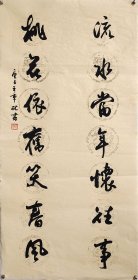 流水當年懷往事
桃花依舊笑春風